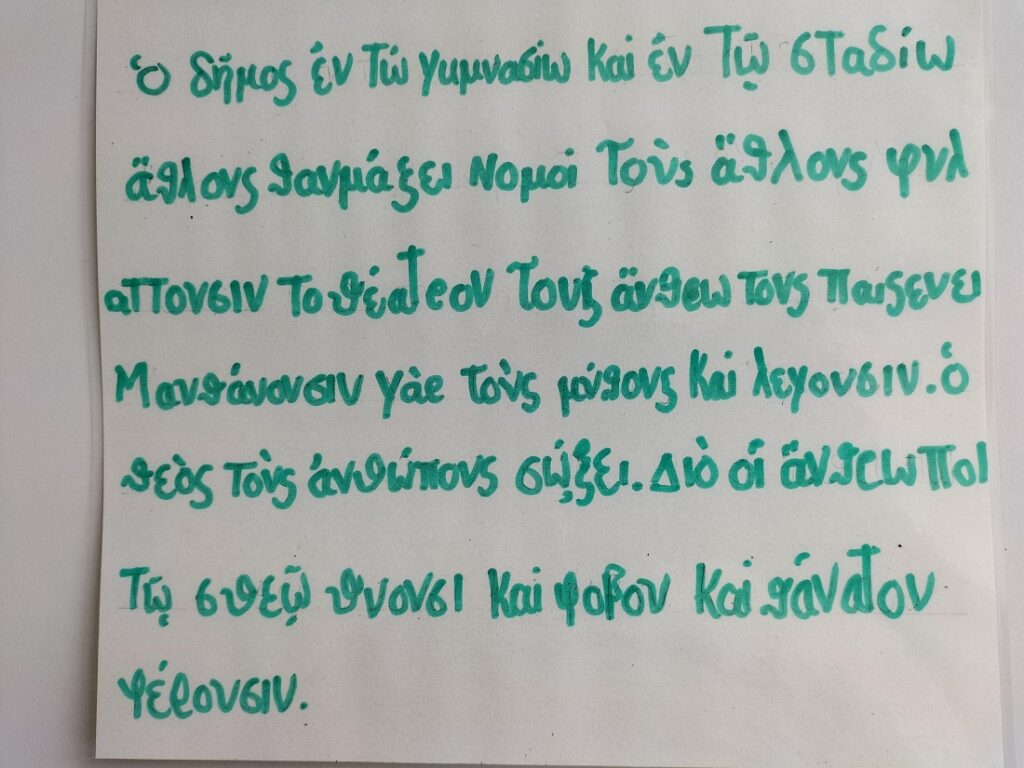 ὁ δῆμος ἐν τῷ γυμνασίω καί ἐν τῷ σταδίω
ἄθλους θαυμάξει νομοί τοὺς ἄθλους φυλ
αττουσιν το θέατρον τους ἄνθρωπους παιξευει
Μανθάνουσιν γὰρ τοὺς μύθους καί λεγουσιν. ὁ
θεὸς τοὺς ἀνθώπους σῴξει. Διὸ οἱ ἄνθρωποι
τῷ σθεῷ θυουσι καί φοβον καί θάνατον
φέρουσιν.